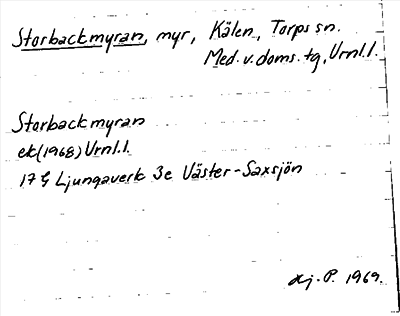 Storbackmyran, myr, Kälen, Torps sn.
Med. v. doms. tg, Urnl.l.
Storbackmyran
ek(1968) Urnl.l.
17 G Ljungaverk 3e Väster-Saxsjön
P. 1969.